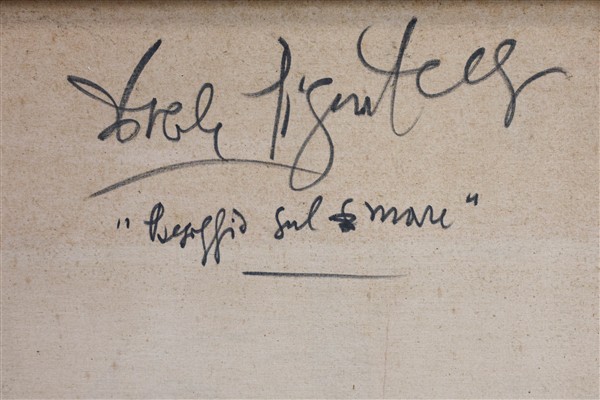 Ercole Pignatelli
"Paesaggio sul mare"